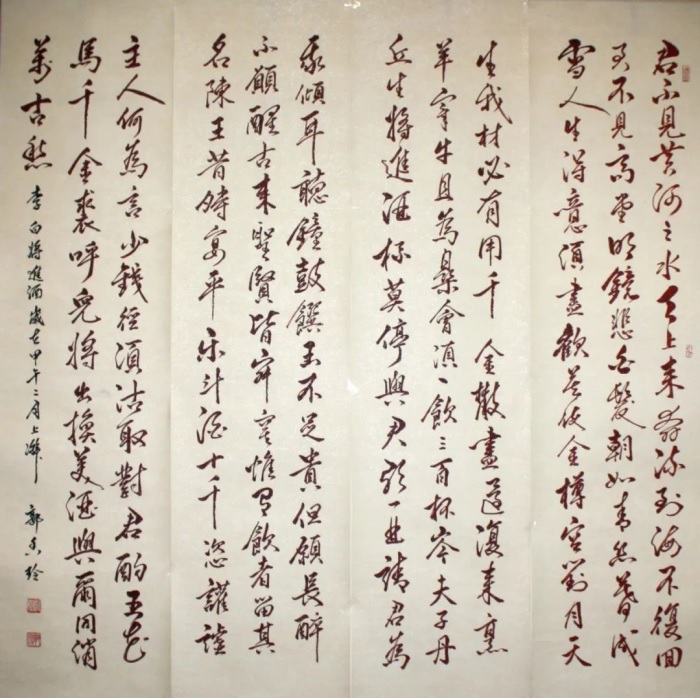 君不見黃河之水天上來奔流到海不復回
君不見高堂明鏡悲白髮朝如青絲暮成
雪人生得意須盡歡莫使金樽空對月天
生我材必有用千金散盡還復來烹
羊宰牛且為樂會須一飲三百杯岑夫子丹
丘生將進酒杯莫停與君歌一曲請君為
我傾耳聽鐘鼓饌玉不足貴但願長醉
不願醒古來聖賢皆寂寞惟有飲者留其
名陳王昔時宴平樂斗酒十千恣讙謔
主人何為言少錢徑須沽取對君酌五花
馬千金裘呼兒將出換美酒與爾同銷
萬古愁
李白將進酒歲在甲午二月上澣 郭玲